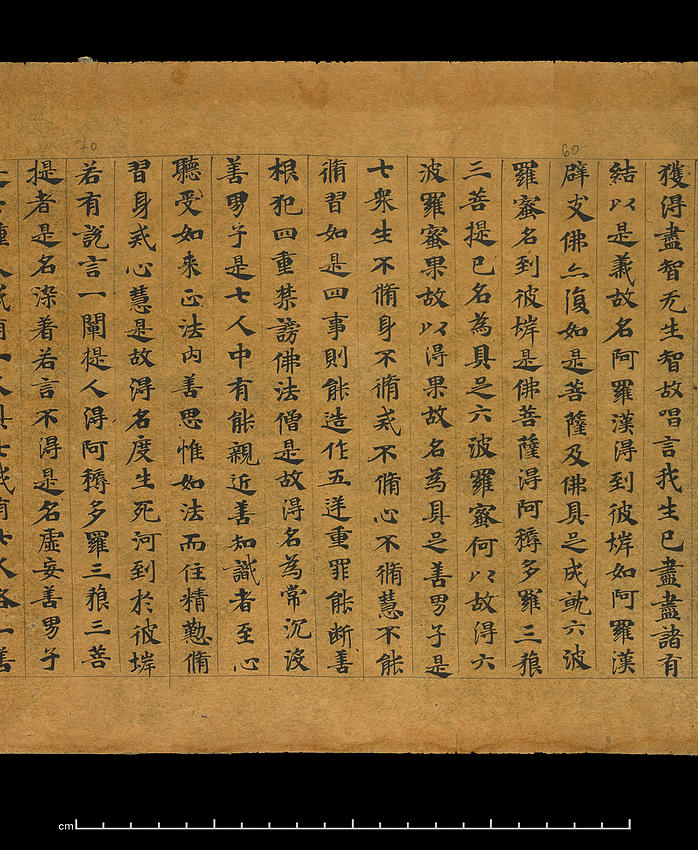 60
70
獲得盡智无生智故唱言我生已盡盡諸有
結以是義故名阿羅漢得到彼垾如阿羅漢
辟支佛亦復如是菩薩及佛具足成就六波
羅蜜名到彼垾是佛菩薩得阿耨多羅三狼
三菩提已名為具足六波羅蜜何以故得六
波羅蜜果故以得果故名為具足善男子是
七衆生不脩身不脩戒不脩心不脩慧不能
脩習如是四事則能造作五逆重罪能断善
根犯四重禁謗佛法僧是故得名為常沉没
善男子是七人中有能親近善知識者至心
聽受如来正法内善思惟如法而住精懃脩
習身戒心慧是故得名度生死河到於彼垾
若有說言一闡提人得阿耨多羅三狼三菩
提者是名染著若言不得是名虛妄善男子
種人或有一人具七或有七人各一善
cm